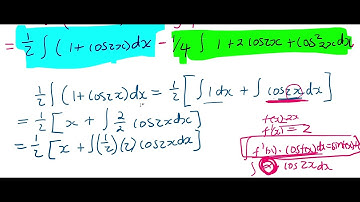 = 1/2 ∫ (1+cos2x)dx - 1/4 ∫ 1+2cos2x+cos²2xdx
1/2 ∫ (1+cos2x)dx = 1/2 [ ∫ 1 dx + ∫ cos2x dx ]
= 1/2 [ x + ∫ 2/2 cos2xdx ]
= 1/2 [ x + ∫(1/2)(2) cos2xdx ]
f(x)=2x
f'(x) = 2
∫ f'(x) · cosf(x)dx=sinf(x)+
∫ cos2xdx